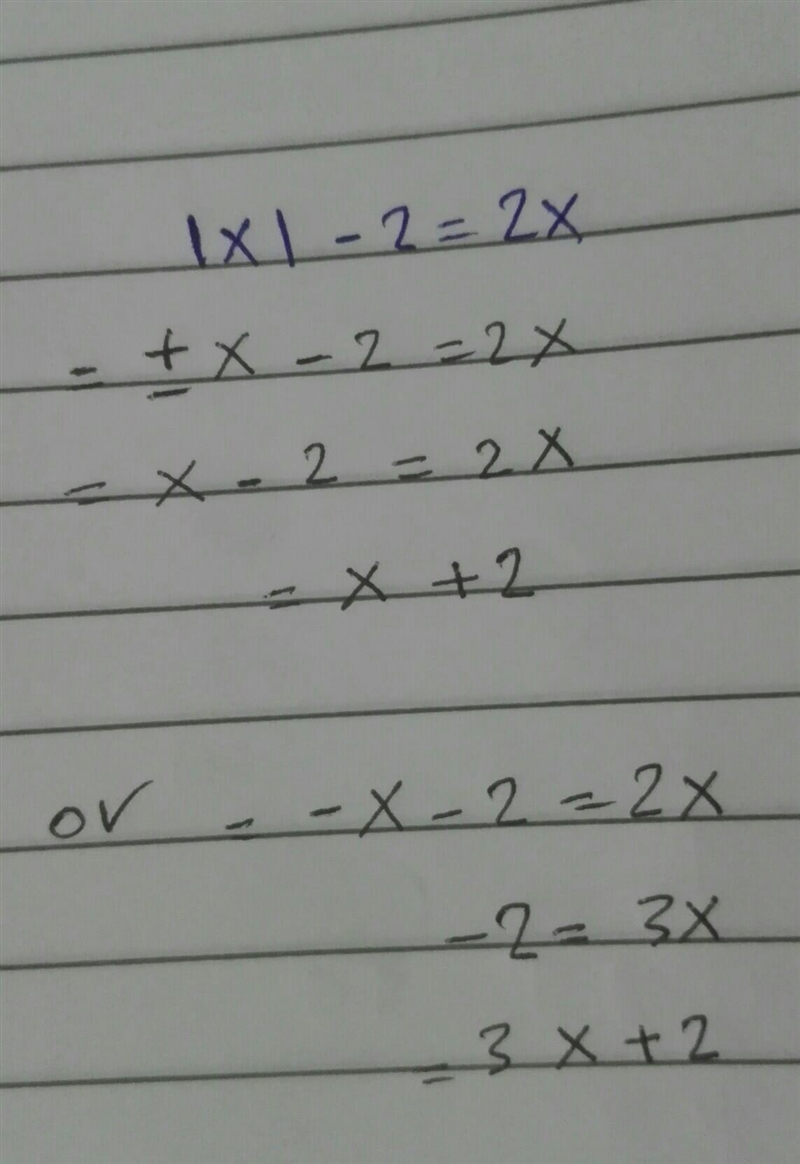 |x| - 2 = 2x
= ± x - 2 = 2x
= x - 2 = 2x
= x + 2
or = - x - 2 = 2x
- 2 = 3x
= 3x + 2